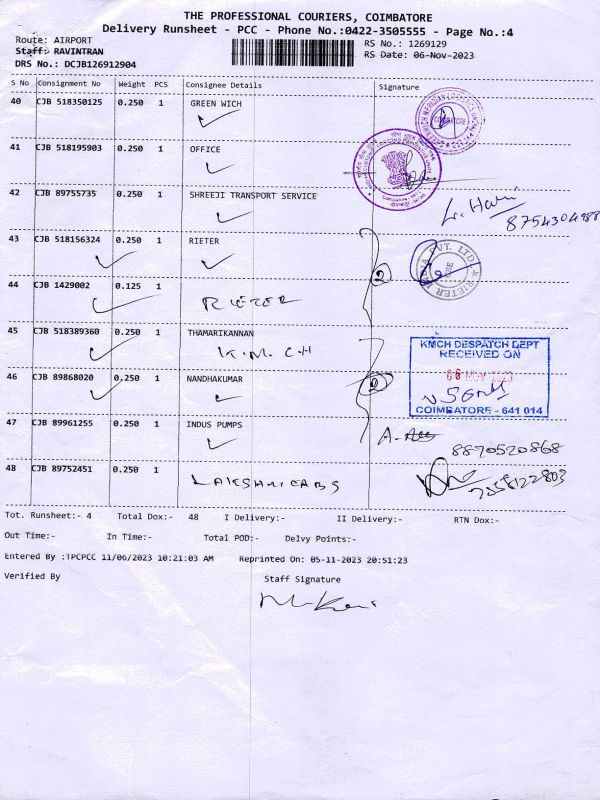 THE PROFESSIONAL COURIERS, COIMBATORE
Delivery Runsheet - PCC - Phone No.:0422-3505555 - Page No.:4
Route: AIRPORT RS No.: 1269129
Staff: RAVINTRAN RS Date: 06-Nov-2023
DRS No.: DCJB126912904
S No Consignment No Weight PCS Consignee Details Signature
40 CJB 518350125 0.250 1 GREEN WICH
COIMBATORE
41 CJB 518195903 0.250 1 OFFICE
42 CJB 89755735 0.250 1 SHREEJI TRANSPORT SERVICE
8754304988
43 CJB 518156324 0.250 1 RIETER
RIETER INDIA PVT. LTD.
44 CJB 1429002 0.125 1 RIETER
2
45 CJB 518389360 0.250 1 THAMARIKANNAN
K.M.C.H
KMCH DESPATCH DEPT
RECEIVED ON
06 NOV 2023
COIMBATORE - 641 014
46 CJB 89868020 0.250 1 NANDHAKUMAR
2
47 CJB 89961255 0.250 1 INDUS PUMPS
8870520868
48 CJB 89752451 0.250 1 LAKSHMI CABS
7358122803
Tot. Runsheet:- 4 Total Dox:- 48 I Delivery:- II Delivery:- RTN Dox:-
Out Time:- In Time:- Total POD:- Delvy Points:-
Entered By :TPCPCC 11/06/2023 10:21:03 AM Reprinted On: 05-11-2023 20:51:23
Verified By Staff Signature